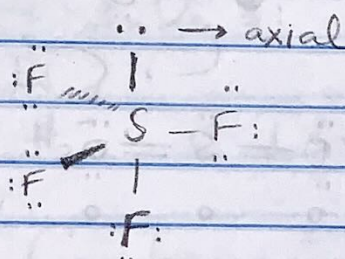 ·· → axial
:F̤̈
S – F̤̈:
:F̤̈
:F̤: